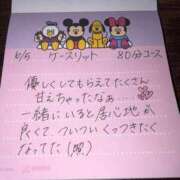 6/5 ケースリット 80分コース
優しくしてもらえてたくさん
甘えちゃったなぁ
一緒にいると居心地が
良くて、ついついくっつきたく
なってた(照)